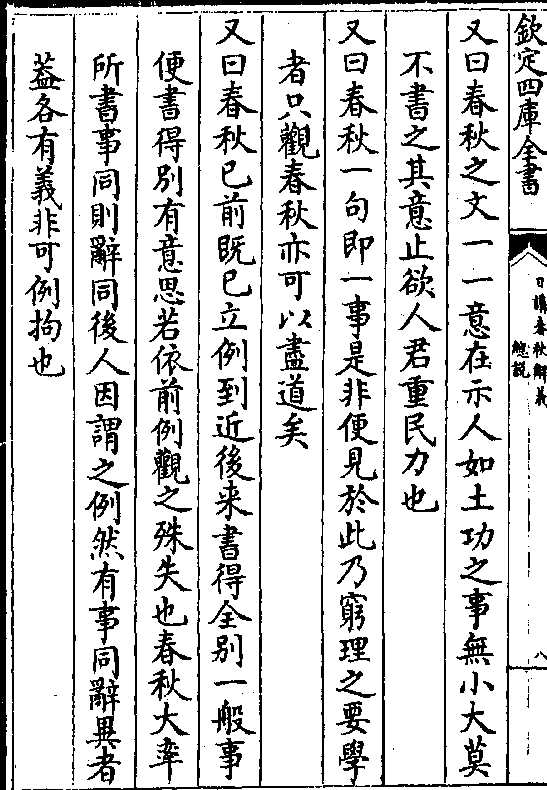 欽定四庫全書
日講春秋解義
總説
八
又曰春秋之文一一意在示人如土功之事無小大莫
不書之其意止欲人君重民力也
又曰春秋一句即一事是非便見於此乃窮理之要學
者只觀春秋亦可以盡道矣
又曰春秋已前既已立例到近後来書得全别一般事
便書得别有意思若依前例觀之殊失也春秋大率
所書事同則辭同後人因謂之例然有事同辭異者
葢各有義非可例拘也